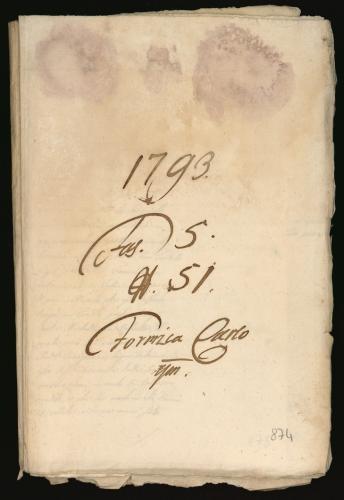 1793.
Fas. 5.
N. 51.
Formica Carlo
874